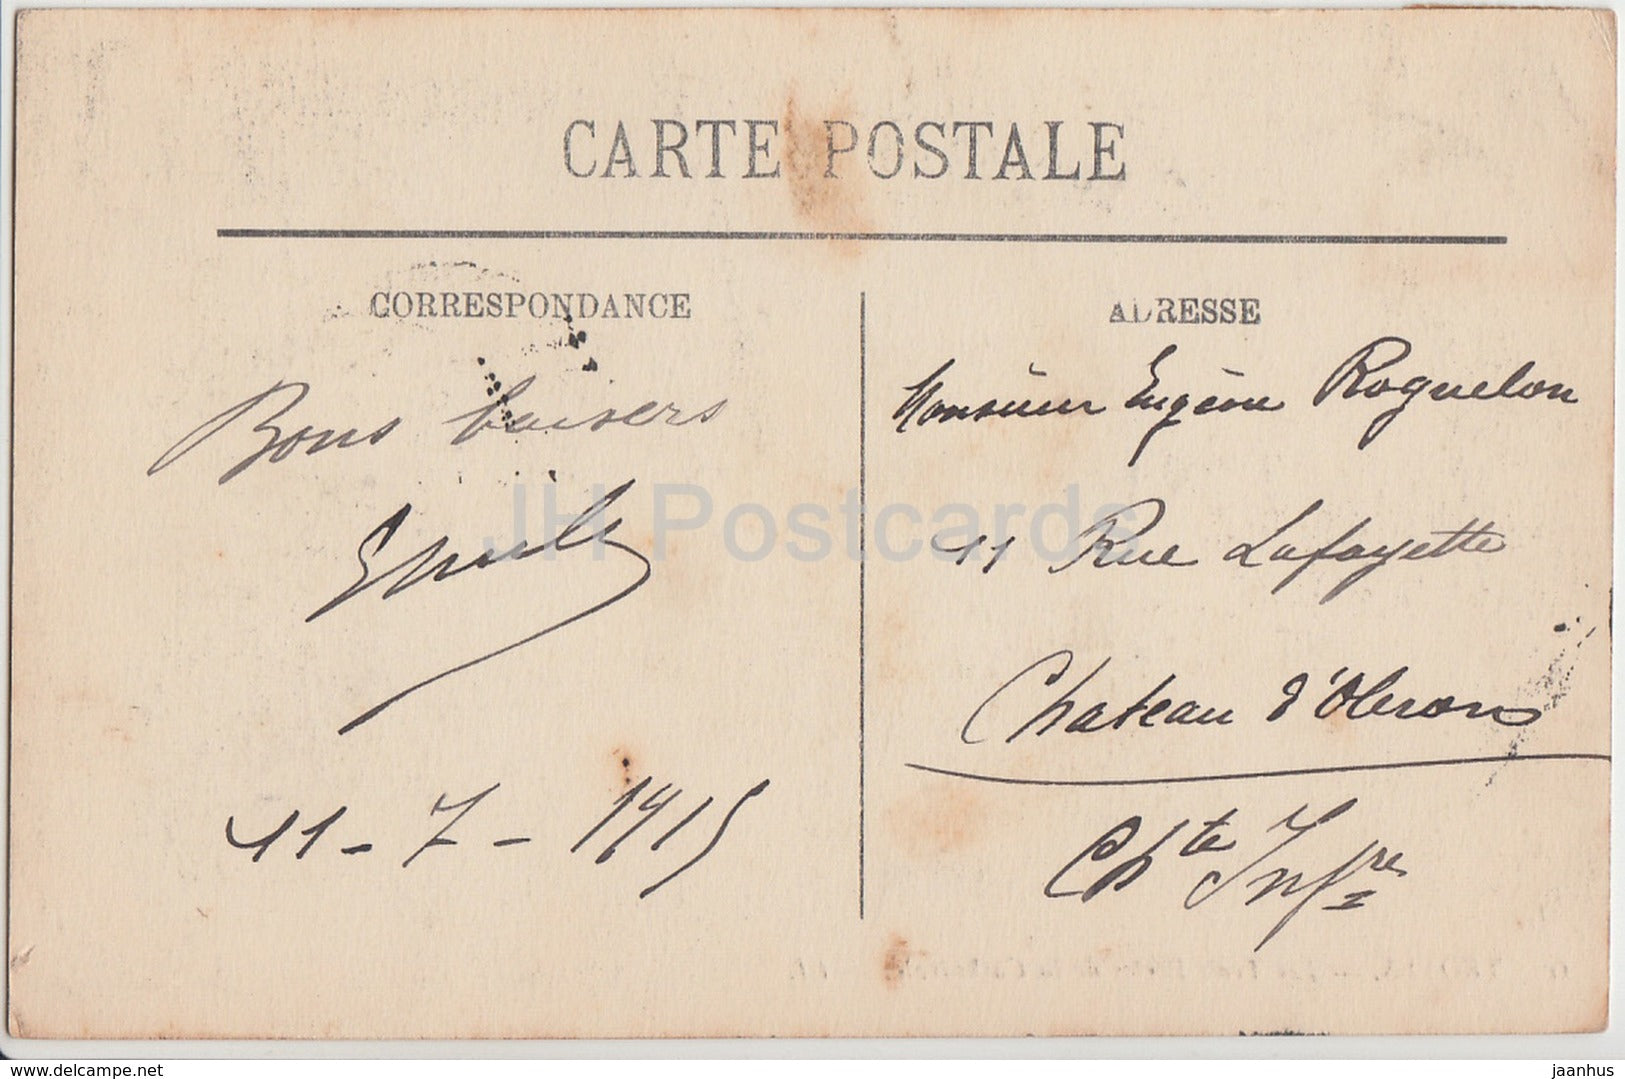 CARTE POSTALE
CORRESPONDANCE
Bons baisers
Emile
11-7-1915
ADRESSE
Monsieur Eugène Roguelon
11 Rue Lafayette
Chateau d'Oleron
Chte Infre
JH Postcards
delcampe.net
jaanhus